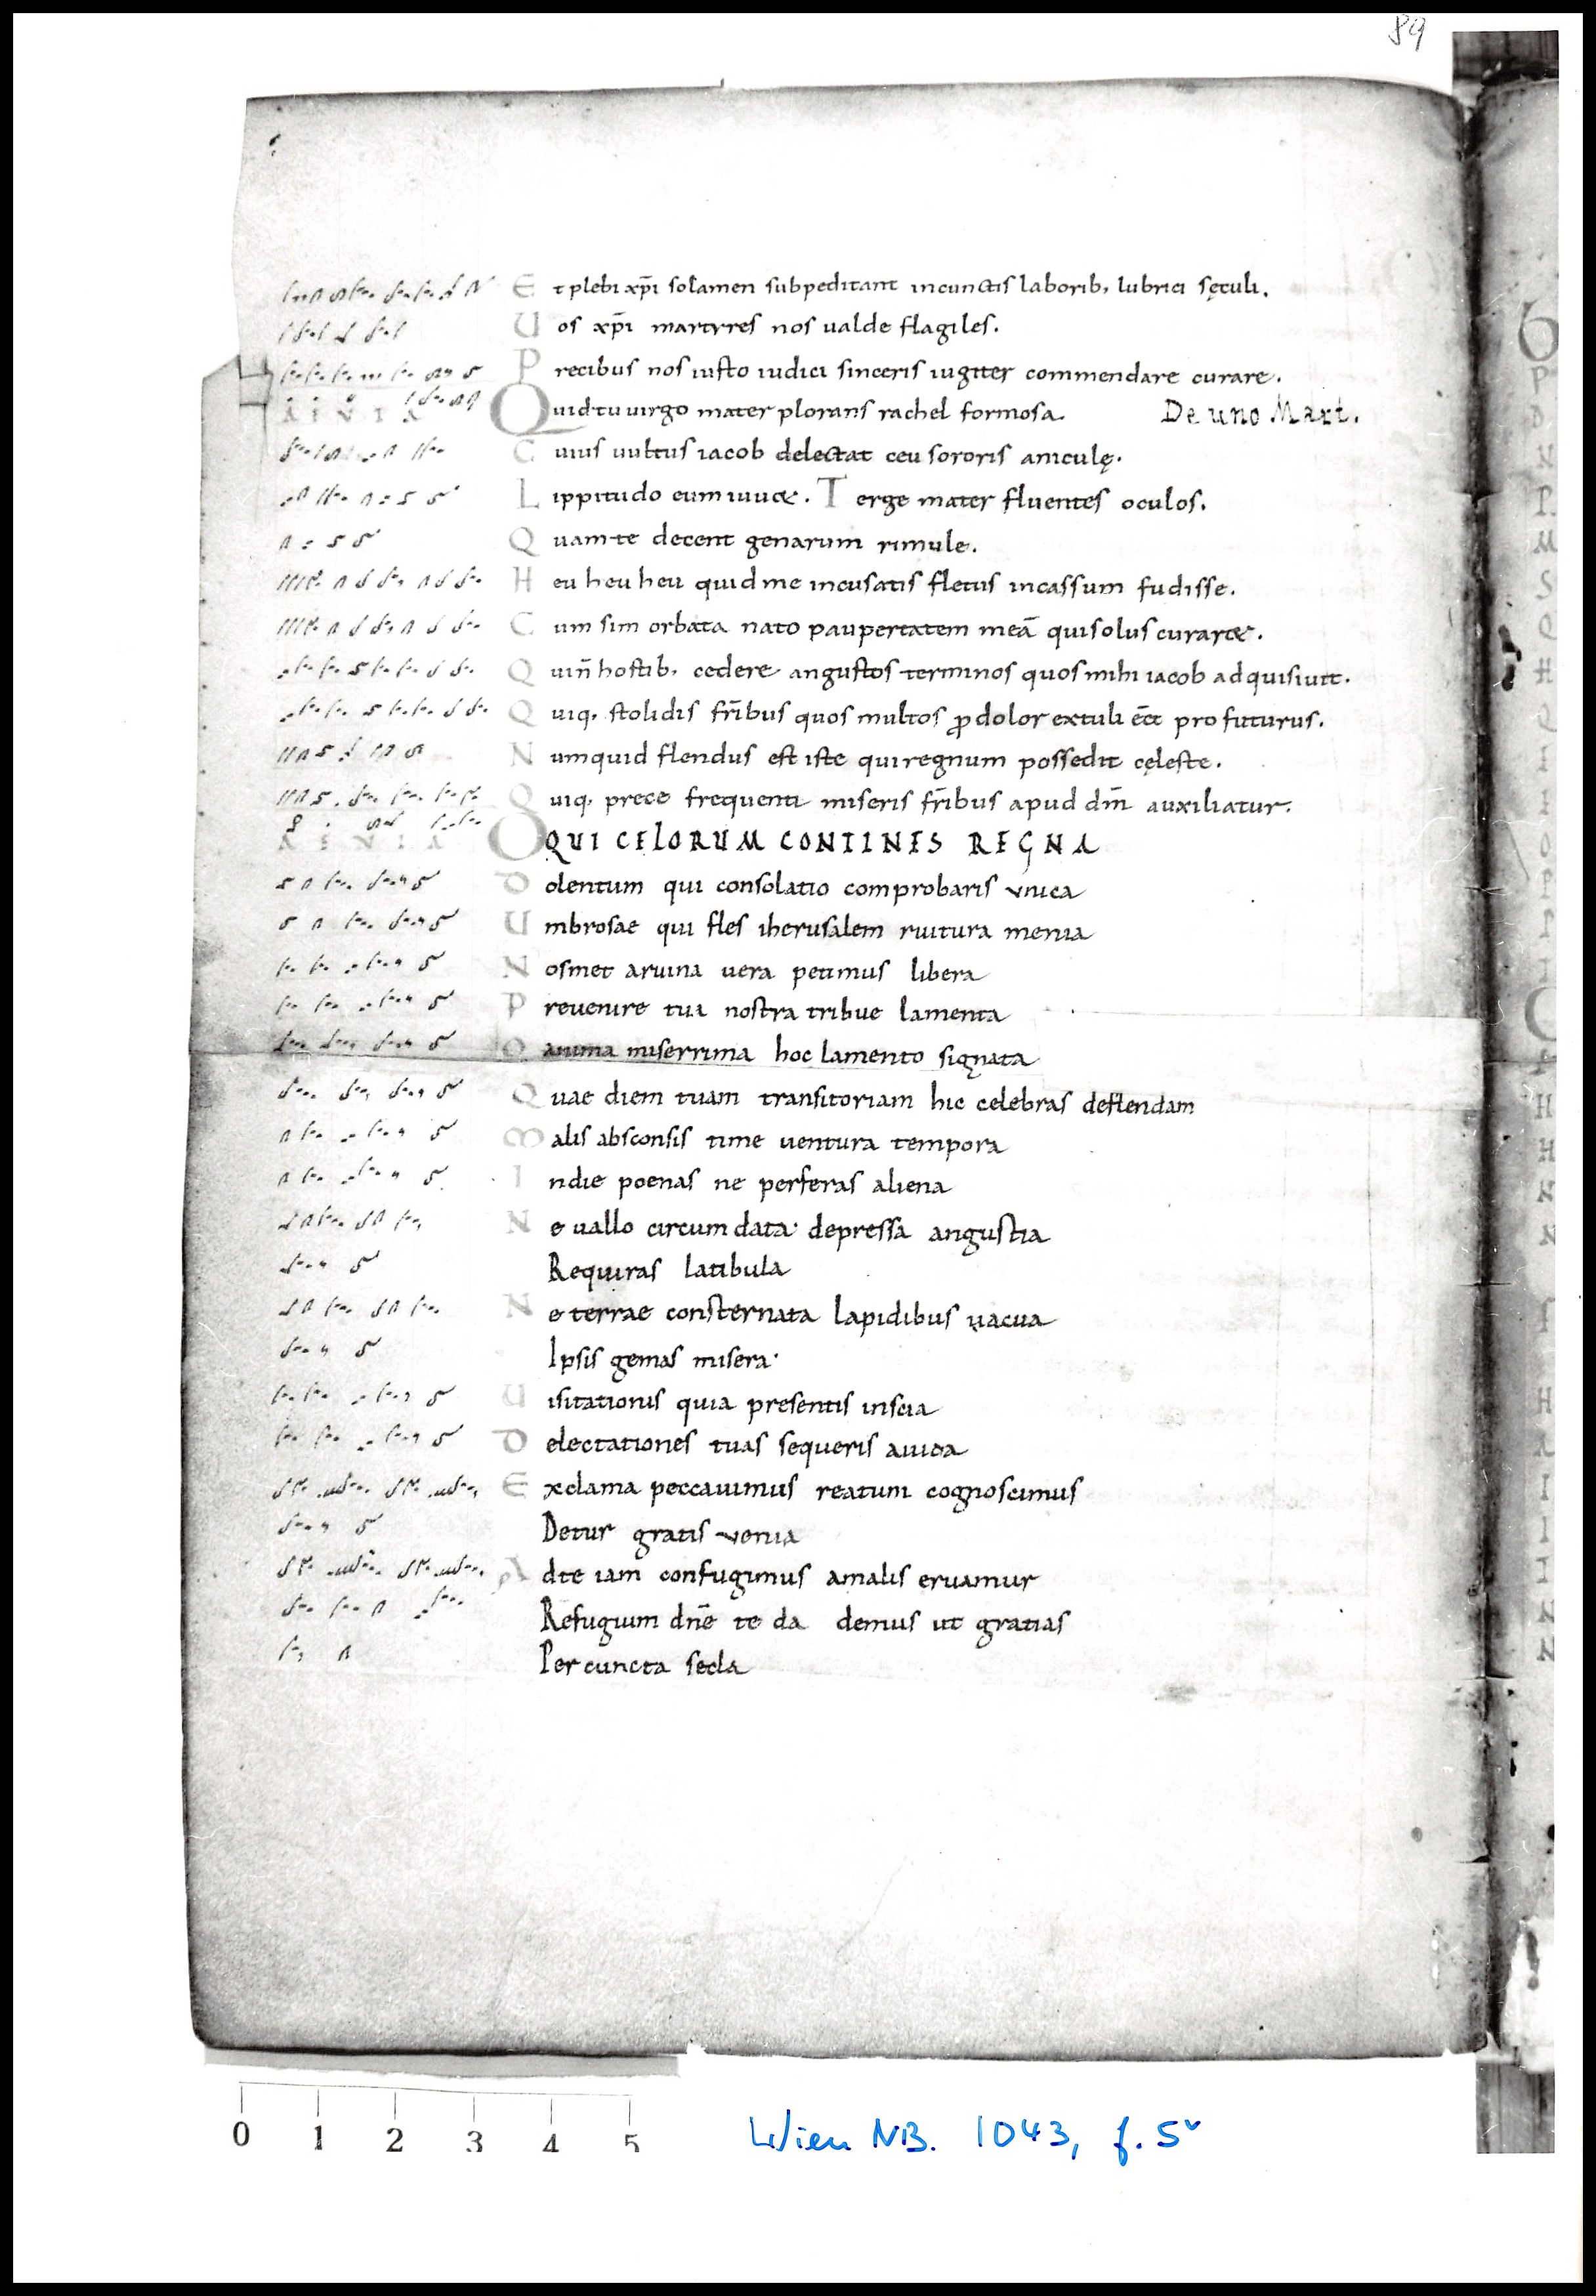 89
Et plebi xp̄i solamen subpeditant incunctis laborib, lubrici sęculi.
Uos xp̄i martyres nos ualde flagiles.
Precibus nos iusto iudici sinceris iugiter commendare curare.
AEVIA Quid tu uirgo mater plorans rachel formosa. De uno Mart.
Cuius uultus iacob delectat ceu sororis aniculę.
Lippitudo eum iuuet. Terge mater fluentes oculos.
Quam te decent genarum rimule.
Heu heu heu quid me incusatis fletus incassum fudisse.
Cum sim orbata nato paupertatem meā qui solus curaret.
Qui n̄ hostib, cedere angustos terminos quos mihi iacob adquisiuit.
Quiq, stolidis fr̄ibus quos multos ꝓ dolor extuli eēt pro futurus.
Numquid flendus est iste qui regnum possedit cęleste.
Quiq, prece frequenti miseris fr̄ibus apud dm̄ auxiliatur.
AEVIA O QUI CELORUM CONTINES REGNA
Dolentum qui consolatio comprobaris vnica
Umbrosae qui fles iherusalem ruitura menia
Nosmet aruina uera petimus libera
Preuenire tua nostra tribue lamenta
O anima miserrima hoc lamento signata
Quae diem tuam transitoriam hic celebras deflendam
Malis absconsis time uentura tempora
Indie poenas ne perferas aliena
Ne uallo circum data· depressa angustia
Requiras latibula
Ne terrae consternata lapidibus uacua
Ipsis gemas misera·
Uisitationis quia presentis inscia
Delectationes tuas sequeris auida
Exclama peccauimus reatum cognoscimus
Detur gratis venia
Adte iam confugimus amalis eruamur
Refugium dn̄e te da demus ut gratias
Per cuncta secla
0 1 2 3 4 5
Wien NB. 1043, f. 5v